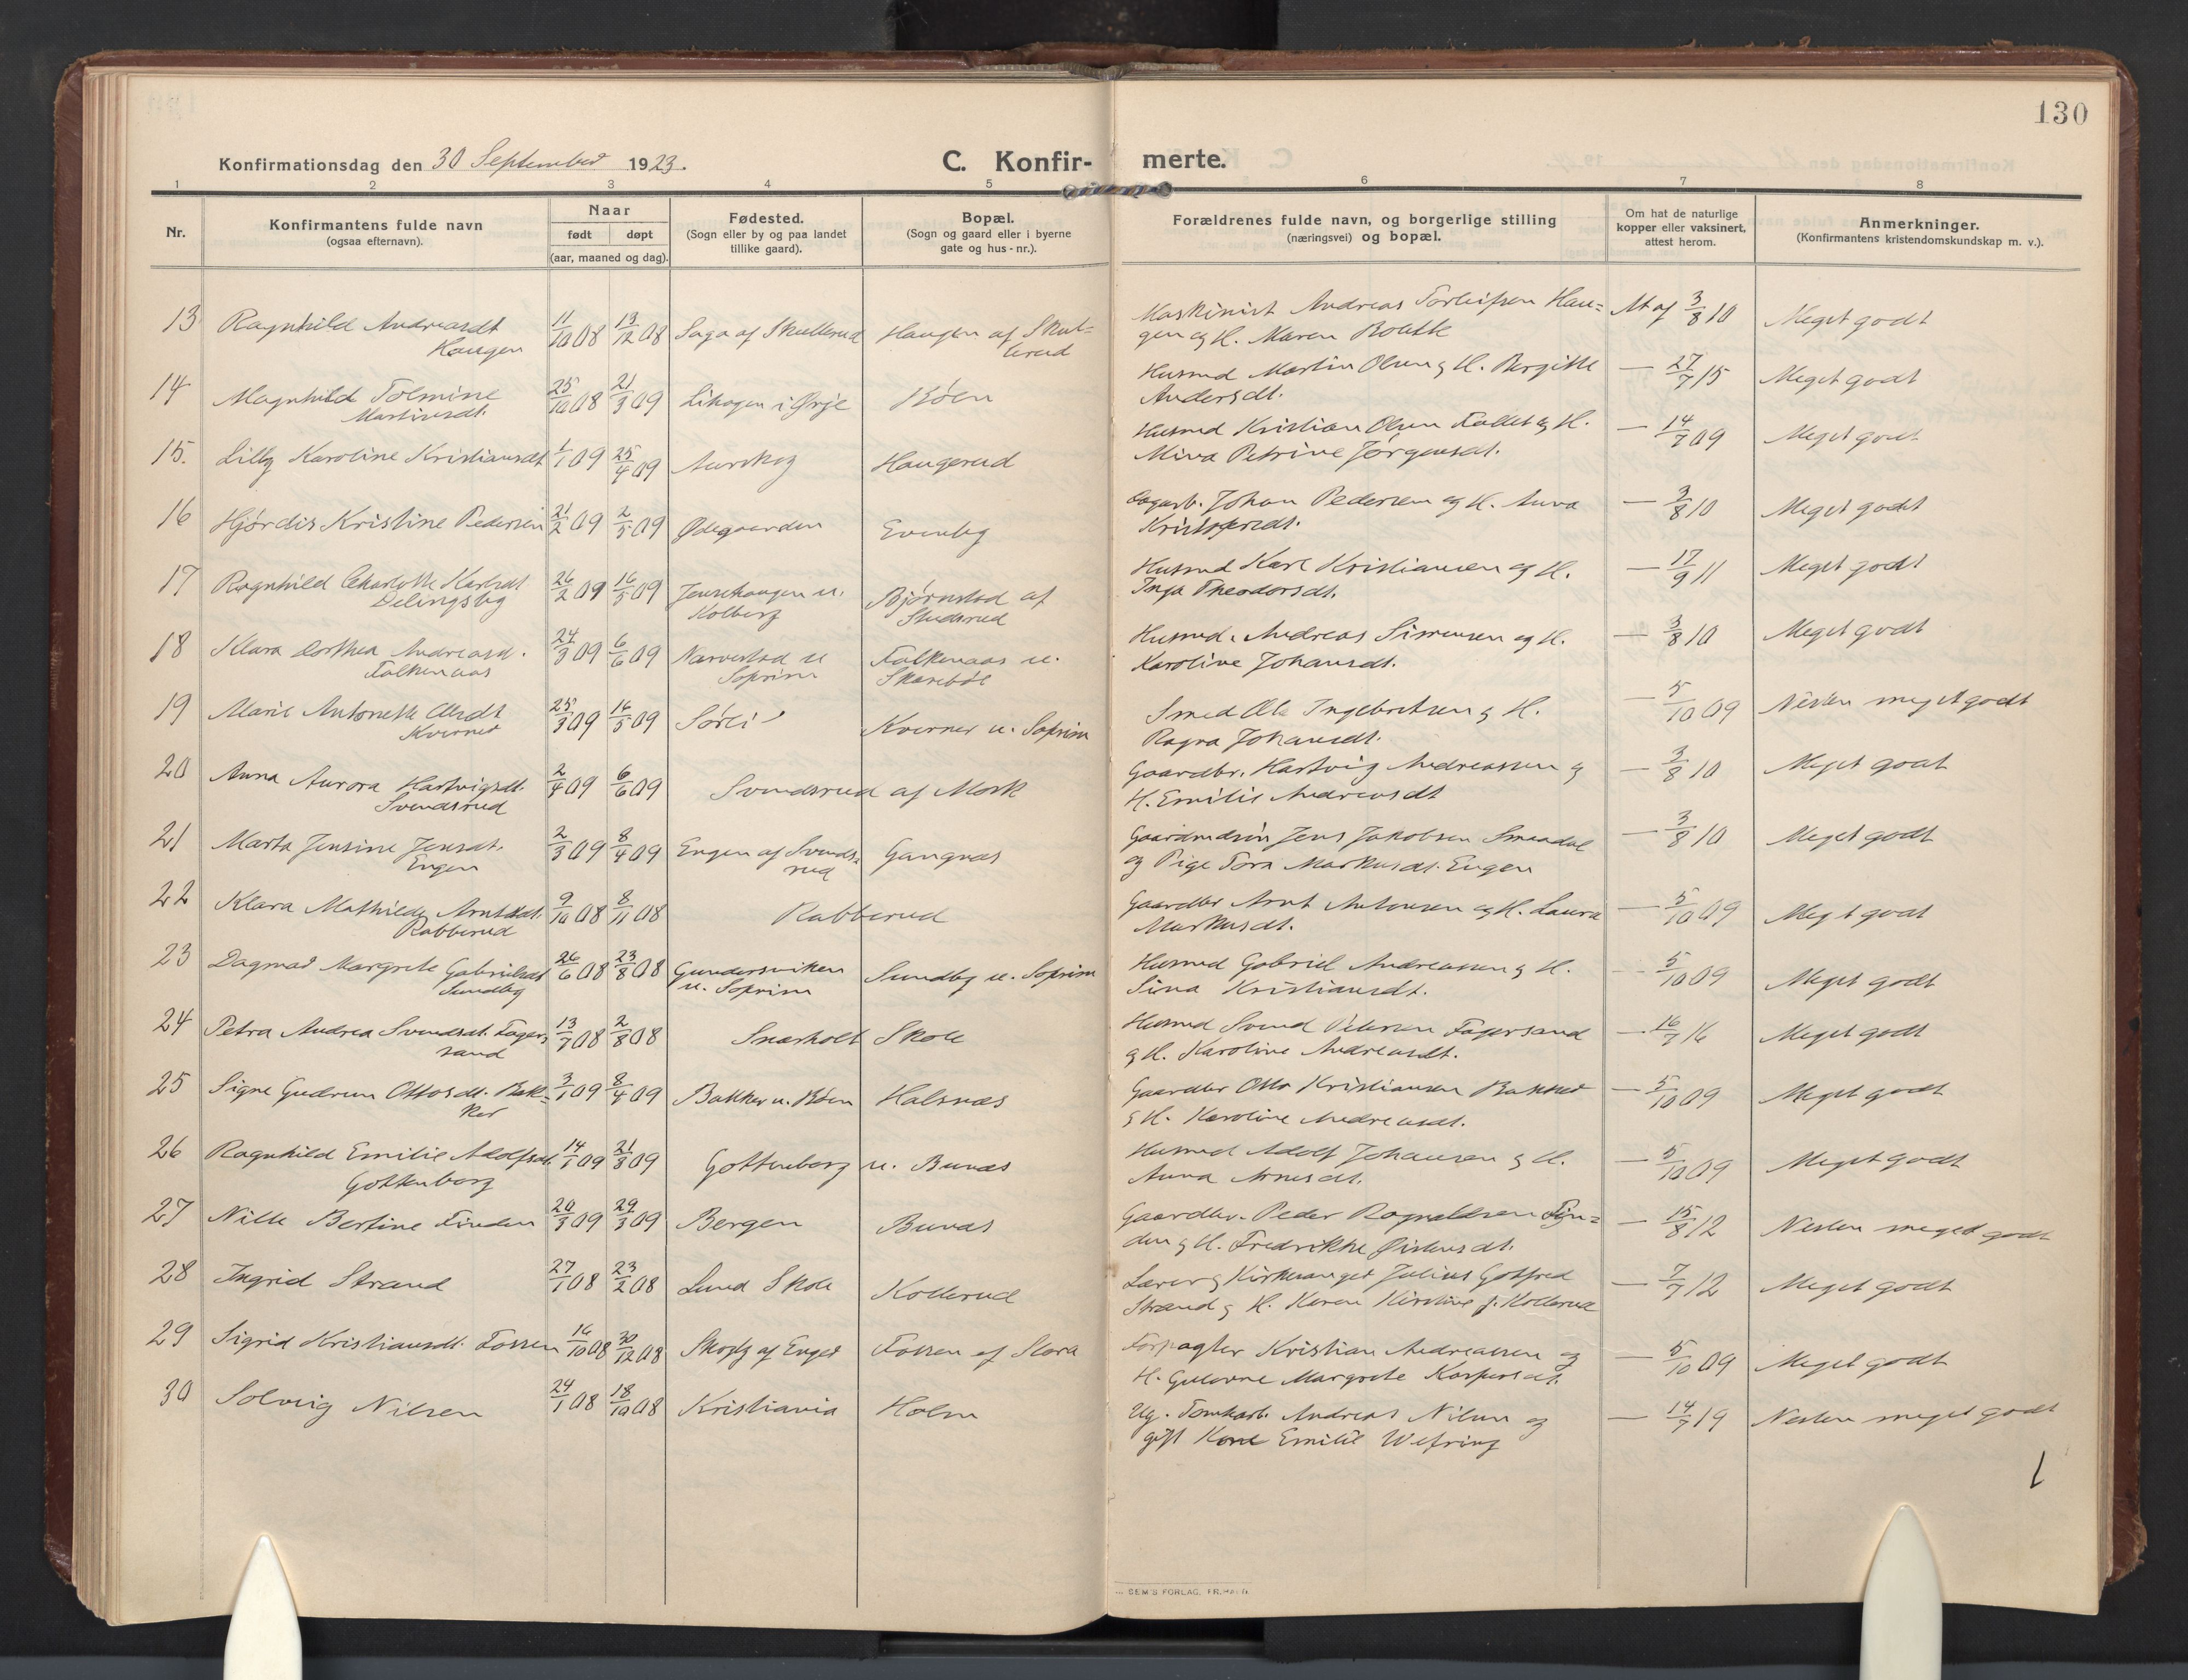 130
Konfirmationsdag den 30 September 1923.
C. Konfir- merte.
1 2 3 4 5 6 7 8
Nr.
Konfirmantens fulde navn
(ogsaa efternavn).
Naar
født døpt
(aar, maaned og dag).
Fødested.
(Sogn eller by og paa landet
tillike gaard).
Bopæl.
(Sogn og gaard eller i byerne
gate og hus-nr.).
Forældrenes fulde navn, og borgerlige stilling
(næringsvei) og bopæl.
Om hat de naturlige
kopper eller vaksinert,
attest herom.
Anmerkninger.
(Konfirmantens kristendomskundskap m. v.).
13 Ragnhild Andreasdt 11/10 08 13/12 08 Saga af Skullerud Haugen af Skul- Maskinist Andreas Torleifsen Hau= At af 3/8 10 Meget godt
Haugen lerud gen og H. Maren
14 Magnhild Tolmine 25/10 08 21/3 09 i Ørje Böen Husmd Martin Olsen og H. Bergitte — 27/7 15 Meget godt
Martinsdt. Andersdt.
15. Lilly Karoline Kristiansdt 1/1 09 25/4 09 Aurskog Haugerud Husmd Kristian Olsen og H. — 14/7 09 Meget godt
Mina Petrine Jørgensdt.
16 Hjørdis Kristine Pedersen 21/2 09 2/5 09 Ødegaarden Evenby Johan Pedersen og H. Anna — 3/8 10 Meget godt
17 Ragnhild Charlotte Karlsdt 26/2 09 16/5 09 Jensehaugen u. Bjørnstad af Husmd Karl Kristiansen og H. — 17/9 11 Meget godt
Delingsby Kolberg Inga Theodorsdt.
18 Klara Dorthea Andreasd. 24/3 09 6/6 09 Narvestad u Falkenaas u. Husmd. Andreas Simensen og H. — 3/8 10 Meget godt
Falkenaas Soprim Skarebøl Karoline Johansdt.
19 Marie Antonette Olesdt 25/3 09 16/5 09 Sørli Kverner u. Soprim Smed Ole Ingebretsen og H. — 5/10 09 Nesten meget godt
Kverner Ragna Johansdt.
20 Anna Aurora Hartvigsdt. 2/4 09 6/6 09 Svendsrud af Mork Gaardbr. Hartvig Andreassen og — 3/8 10 Meget godt
Svendsrud H. Emilie Andreasdt
21 Marta Jensine Jensdt. 2/3 09 8/4 09 Engen af Svends= Gangnæs Jens Jakobsen Smaadal — 3/8 10 Meget godt
Engen rud og Pige Tora Markusdt. Engen
22 Klara Mathilde Arntsdt. 9/10 08 8/11 08 Rabberud Gaardbr Arnt Antonsen og H. Laura — 5/10 09 Meget godt
Rabberud Markusdt.
23 Dagmar Margrete Gabrielsdt 26/6 08 23/8 08 Gundersviken Sundby u. Soprim Husmd Gabriel Andreassen og H. — 5/10 09 Meget godt
Sundby u. Soprim Sina Kristiansdt.
24 Petra Andrea Svendsdt. Fager= 13/7 08 2/8 08 Snarholt Skole Husmd Svend Petersen Fagersand — 16/7 16 Meget godt
sand og H. Karoline Andreasdt.
25 Signe Gudrun Ottosdt. Bak= 3/1 09 8/4 09 Bakker u. Böen Halsnæs Gaardbr Otto Kristiansen Bakker — 5/10 09 Meget godt
ker og H. Karoline Andreasdt.
26 Ragnhild Emilie Adolfsdt. 14/1 09 21/3 09 Gottenborg u. Bunæs Husmd Adolf Johansen og H. — 5/10 09 Meget godt
Gottenborg Anna Arnesdt.
27 Nille Bertine Finden 20/3 09 29/3 09 Bergen Bunæs Gaardbr. Peder Ragnaldsen Fin= — 15/8 12 Nesten meget godt
den og H. Fredrikke Øistensdt.
28 Ingrid Strand 27/1 08 23/2 08 Lund Skole Kollerud Lærer og Kirkesanger Julius Gotfred — 7/7 12 Meget godt
Strand og H. Karen Kirstine f. Kollerud
29 Sigrid Kristiansdt. Fossen 16/10 08 30/12 08 Skogly af Enger Fossen af Slora Forpagter Kristian Andreassen og — 5/10 09 Meget godt
H. Gulovne Margrete Kaspersdt.
30 Solveig Nilsen 24/1 08 18/10 08 Kristiania Holm Ug. Tomtearb. Andreas Nilsen og — 14/7 19 Nesten meget godt
gift Kone Emilie Wefring
SEM'S FORLAG, FR.HALD.